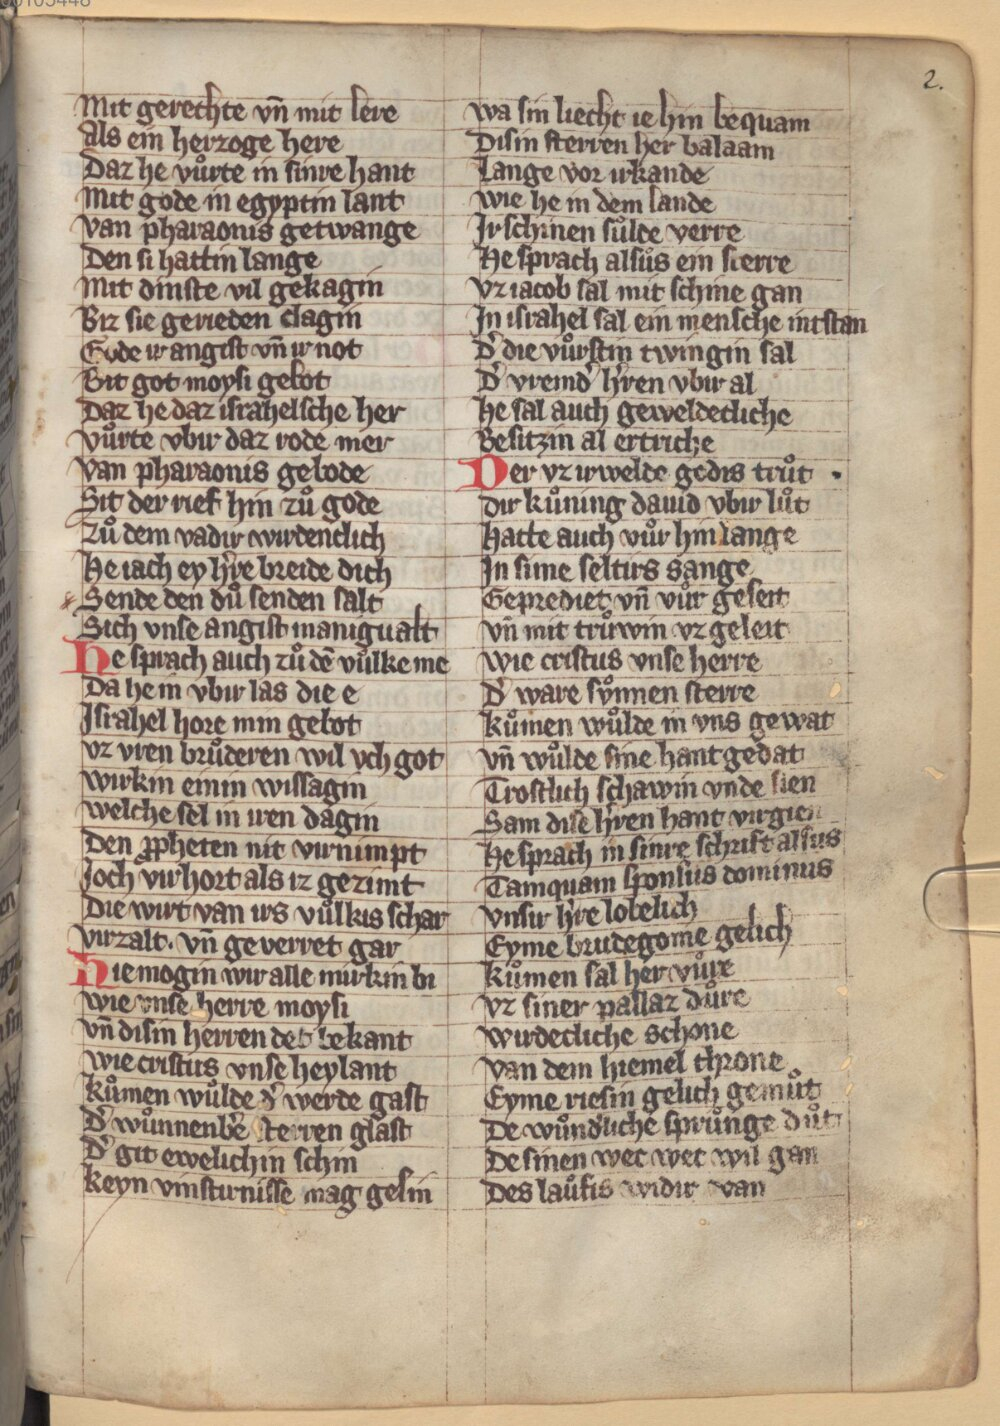 2.
Mit gerechte vn̄ mit lere
Als ein herzoge here
Daz he vůrte in sinre hant
Mit gode in egyptin lant
Van pharaonis getwange
Den si hattin lange
Mit dinste vil gekagin
Biz sie gerieden clagin
Gode ir angist vn̄ ir not
Bit got moysi gebot
Daz he daz israhelsche her
Vůrte vbir daz rode mer
Van pharaonis gebode
Sit der rief hin zů gode
Zů dem vadir wirdenclich
He iach ey h're breide dich
Sende den dů senden salt
Sich vnse angist manigualt
He sprach auch zů dē vůlke me
Da he in vbir las die e
Israhel hore min gebot
Vz vren brůderen wil vch got
Wirkin einin wissagin
Welche sel in iren dagin
Den ꝓpheten nit virnimpt
Joch virhort als iz gezimt
Die wirt van irs vůlkis schar
Virzalt. vn̄ geverret gar
Hie mogin wir alle mirkin bi
Wie vnse herre moysi
Vn̄ disin herren det bekant
Wie cristus vnse heylant
Kůmen wůlde d' werde gast
D' wůnnenb'e sterren glast
D' git ewelichin schin
Keyn vinsturnisse mag gesin
Wa sin liecht ie hin bequam
Disin sterren her balaam
Lange vor irkande
Wie he in dem lande
Irschinen sůlde verre
He sprach alsus ein sterre
Vz iacob sal mit schine gan
In israhel sal ein mensche intstan
D' die vůrstin twingin sal
D' vremd' h'ren vbir al
He sal auch geweldecliche
Besitzin al ertriche
Der vz irwelde gedis trůt
Dir kůning dauid vbir lůt
Hatte auch vůr hin lange
In sime seltirs sange
Geprediet vn̄ vůr geseit
Vn̄ mit trůwin vz geleit
Wie cristus vnse herre
D' ware sy̌nnen sterre
Kůmen wůlde in vns gewat
Vn̄ wůlde sine hant gedat
Trostlich schawin vnde sien
Sam dise h'ren hant virgien
He sprach in sinre schrift alsus
Tamquam sponsus dominus
Vnsir h're lobelich
Eyme brudegome gelich
Kůmen sal her vůre
Vz siner pallaz důre
Wirdecliche schone
Van dem hiemel throne
Eyme riesin gelich gemůt
De wůnd'liche sprůnge důt
De sinen wec wet wil gan
Des laůfis widir van